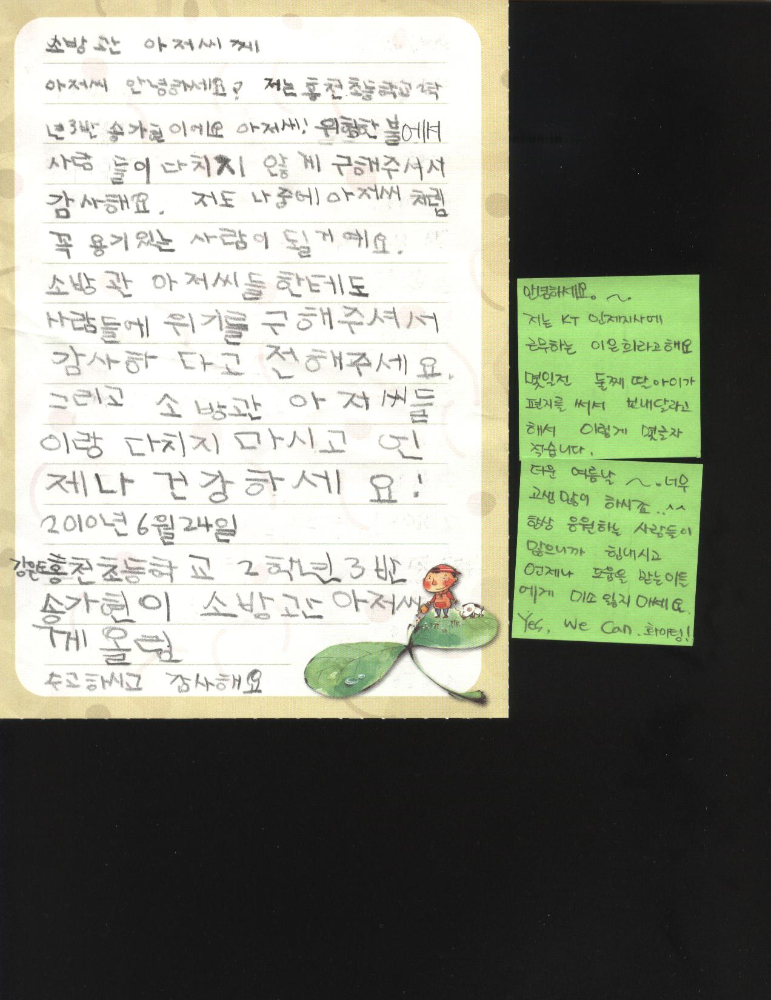 소방관 아저씨께
아저씨 안녕하세요? 저는 홍천초등학교 2학
년 3반 송가현이에요 아저씨! 위험한 불에서
사람 들이 다치지 않게 구해주셔서
감사해요. 저도 나중에 아저씨 처럼
꼭 용기있는 사람이 될거예요.
소방관 아저씨들한테도
사람들에 위기를 구해주셔서
감사하 다고 전해주세요.
그리고 소방관 아저씨들
이랑 다치지 마시고 언
제나 건강하세요!
2010년 6월 24일
강원도홍천초등학교 2학년 3반
송가현이 소방관 아저씨
께 올림
수고하시고 감사해요
안녕하세요. ~.
저는 KT 인제지사에
근무하는 이은희라고해요
몇일전 둘째 딸아이가
편지를 써서 보내달라고
해서 이렇게 몇글자
적습니다.
더운 여름날 ~. 너무
고생많이 하시죠..^^
항상 응원하는 사람들이
많으니까 힘내시고
언제나 도움을 받는이들
에게 미소 잃지 마세요.
Yes, We Can. 화이팅!